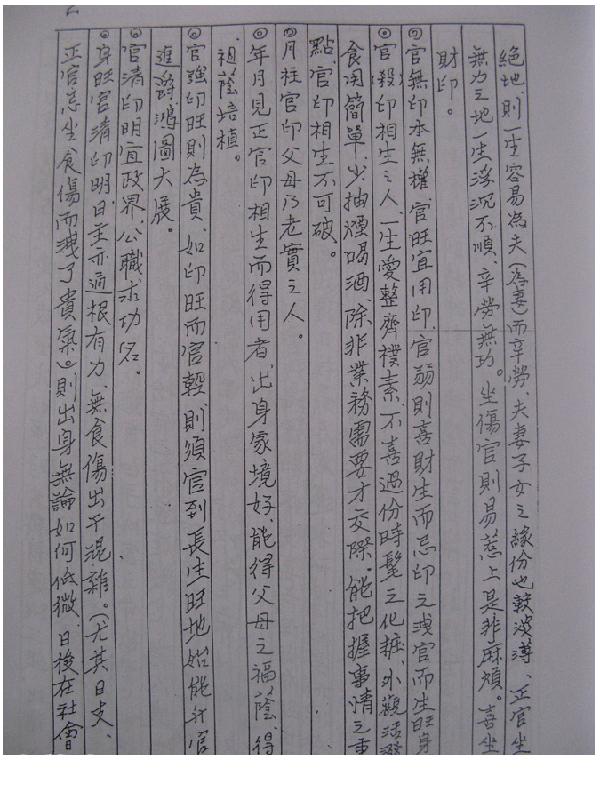 絕地，則一生容易為夫(為妻)而辛勞、夫妻子女之緣份也較波薄、正官坐
無力之地一生浮沉不順、辛勞無功。坐傷官則易惹上是非麻煩。喜坐
財印。
◎官無印本無權、官旺宜用印、官弱則喜財生而忌印之洩官而生旺身
◎官殺印相生之人、一生愛整齊樸素、不喜過份時髦之化粧、外觀活潑
食用簡單、少抽煙喝酒、除非業務需要才交際。能把握事情之重
點、官印相生不可破。
◎月柱官印父母乃老實之人。
◎年月見正官印相生而得用者、出身家境好、能得父母之福蔭、得
祖蔭培植。
◎官強印旺則為貴、如印旺而官輕、則須官到長生旺地始能升官
進爵鴻圖大展。
◎官清印明宜政界、公職求功名、
◎身旺官清印明、日主亦通根有力、無食傷出干混雜。(尤其日支、
正官忌坐食傷而洩了貴氣)則出身無論如何低微、日後在社會